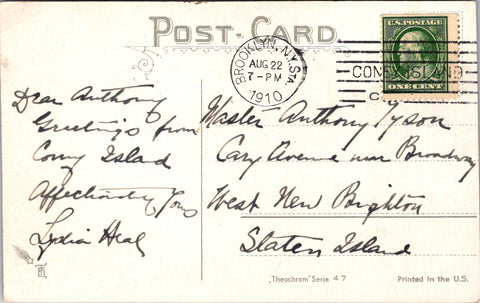 POST-CARD
U.S. POSTAGE
BROOKLYN, N.Y. STA.
AUG 22
7-PM
1910
CONEY ISLAND
ONE CENT
Dear Anthony
Greetings from
Cony Island
Affectionately Yours
Lydia Heal
Master Anthony Tyson
Cary Avenue near Broadway
West New Brighton
Staten Island
„Theochrom" Serie 47
Printed in the U.S.